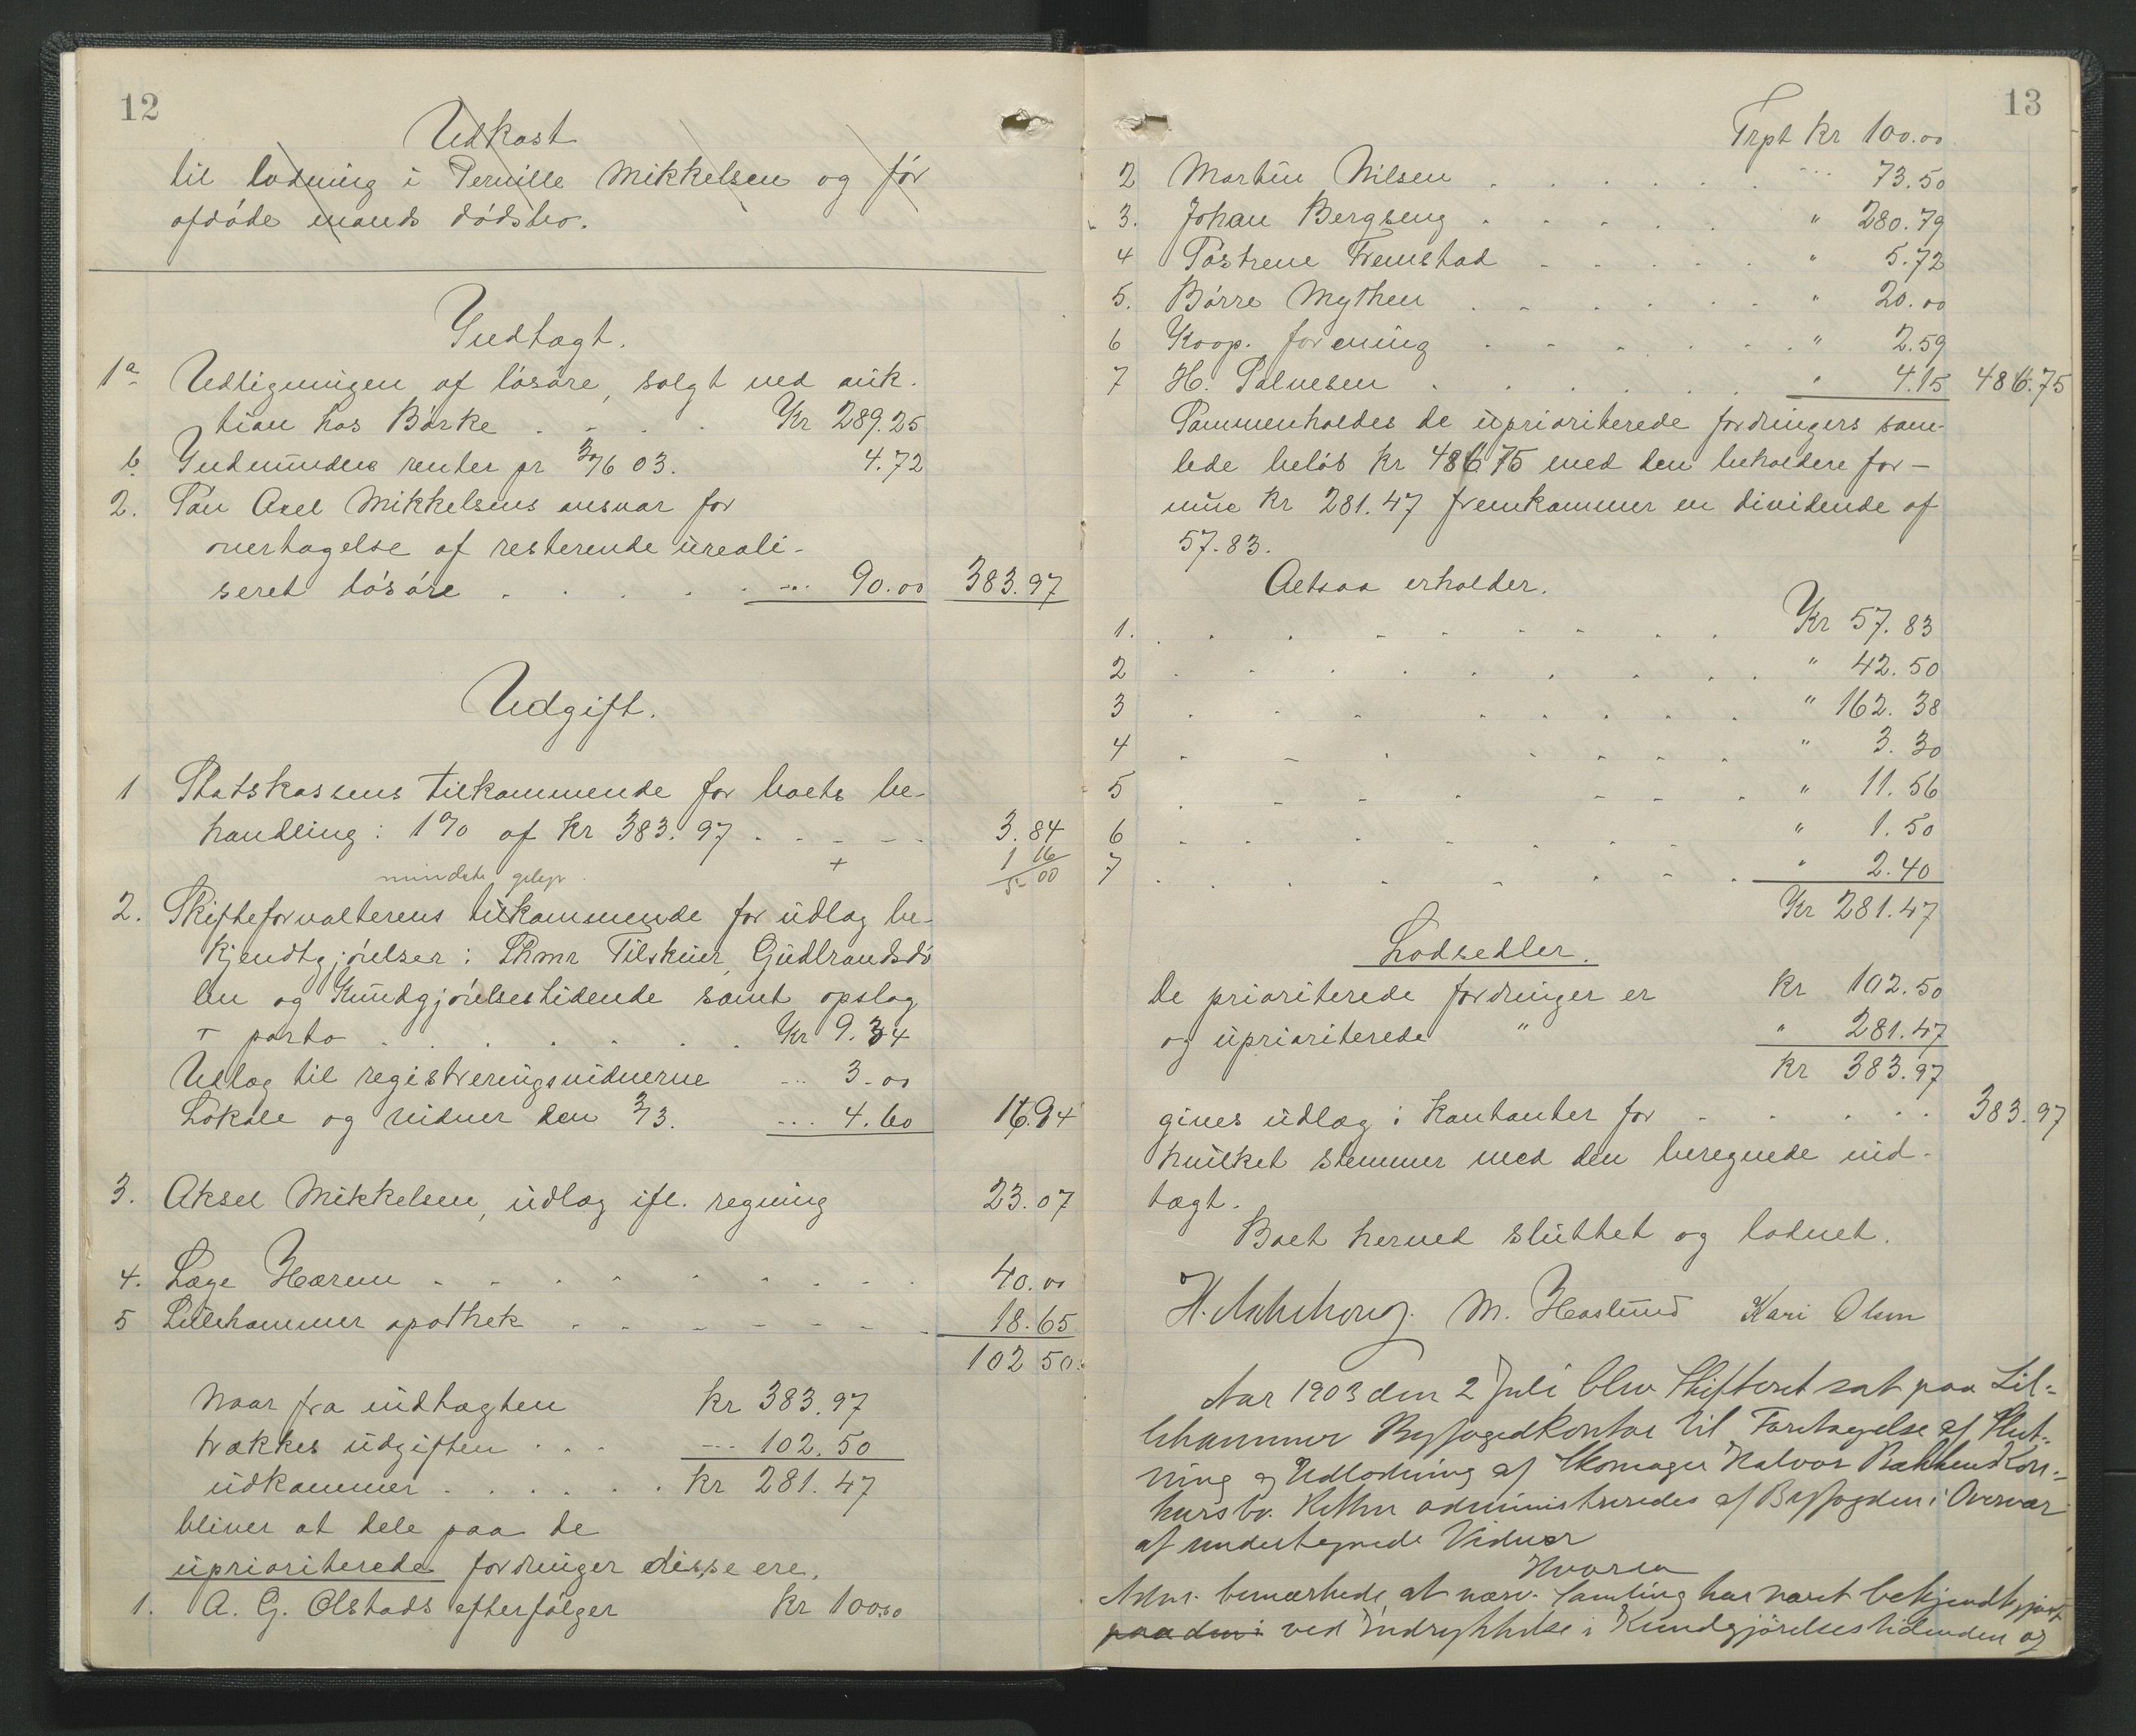 12
Udkast
til lodning i Pernille Mikkelsen og før
afdøde mands dødsbo.
Indtægt.
1a Udligningen af løsøre, solgt ved auk-
tion hos Børke . . . . Kr 289.25
b Indvundne renter pr 30/6 03. 4.72
2. Søn Axel Mikkelsens ansvar for
overtagelse af resterende ureali-
seret løsøre . . . . . --- 90.00 383.97
Udgift.
1 Statskassens tilkommende for boets be-
handling: 1% af Kr 383.97 . . . . . 3.84
mindste gebyr + 1 16
5- 00
2. Skifteforvalterens tilkommende for udlæg be-
kjendtgjørelser: Lhmr Tilskuer, Gudbrandsdø
len og Kundgjørelsestidende samt opslag
+ porto . . . . . . . . Kr 9.34
Udlæg til registreringsvidnerne --- 3.00
Lokale og vidner den 3/3. --- 4.60 16.94
3. Aksel Mikkelsen, udlæg ifl. regning 23.07
4. Læge Hærem . . . . . . . . . 40.00
5 Lillehammer apothek . . . . . . . 18.65
102 50.
Naar fra indtægten Kr 383.97
trækkes udgiften . . . --- 102.50
udkommer . . . . . . Kr 281.47
bliver at dele paa de
upriariterede fordringer disse ere.
1. A. G. Olstads efterfølger Kr 100.00
13
Trpt Kr 100.00
2 Martin Nilsen . . . . . . --- 73.50
3. Johan Bergseng . . . . . " 280.79
4 Søstrene Fremstad . . . . . " 5.72
5. Børre Mythen . . . . . . " 20.00
6 Koop. forening . . . . . . " 2.59
7 H. Salvesen . . . . . . " 4.15 486.75
Sammenholdes de upriariterede fordringers sam-
lede beløb Kr 486 75 med den beholdere for-
mue Kr 281.47 fremkommer en dividende af
57.83.
Altsaa erholder.
1. . . . . . . . . . Kr 57.83
2 . . . . . . . . . " 42.50
3 . . . . . . . . . " 162.38
4 . . . . . . . . " 3.30
5 . . . . . . . . " 11.56
6 . . . . . . . . " 1.50
7 . . . . . . . . " 2.40
Kr 281.47
Lodsedler.
De priariterede fordringer er Kr 102.50
og upriariterede " " 281.47
Kr 383.97
gives udlæg i kontanter for . . . . . . 383.97
hvilket stemmer med den beregnede ind-
tægt.
Boet herved sluttet og lodnet.
M. Haslund Kari Olsen
Aar 1903 den 2 Juli blev Skifteret sat paa Lil-
lehammer Byfogedkontor til Foretagelse af Slut-
ning og Udlodning af Skomager Halvor Bakkens Kon-
kursbo. Retten administreredes af Byfogden i Overvær
af undertegnede Vidner
Hvorda
Adm. bemærkede, at nærv. Samling har været bekjendtgjort
paa den i ved Indrykkelse i Kundgjørelsestidenden og